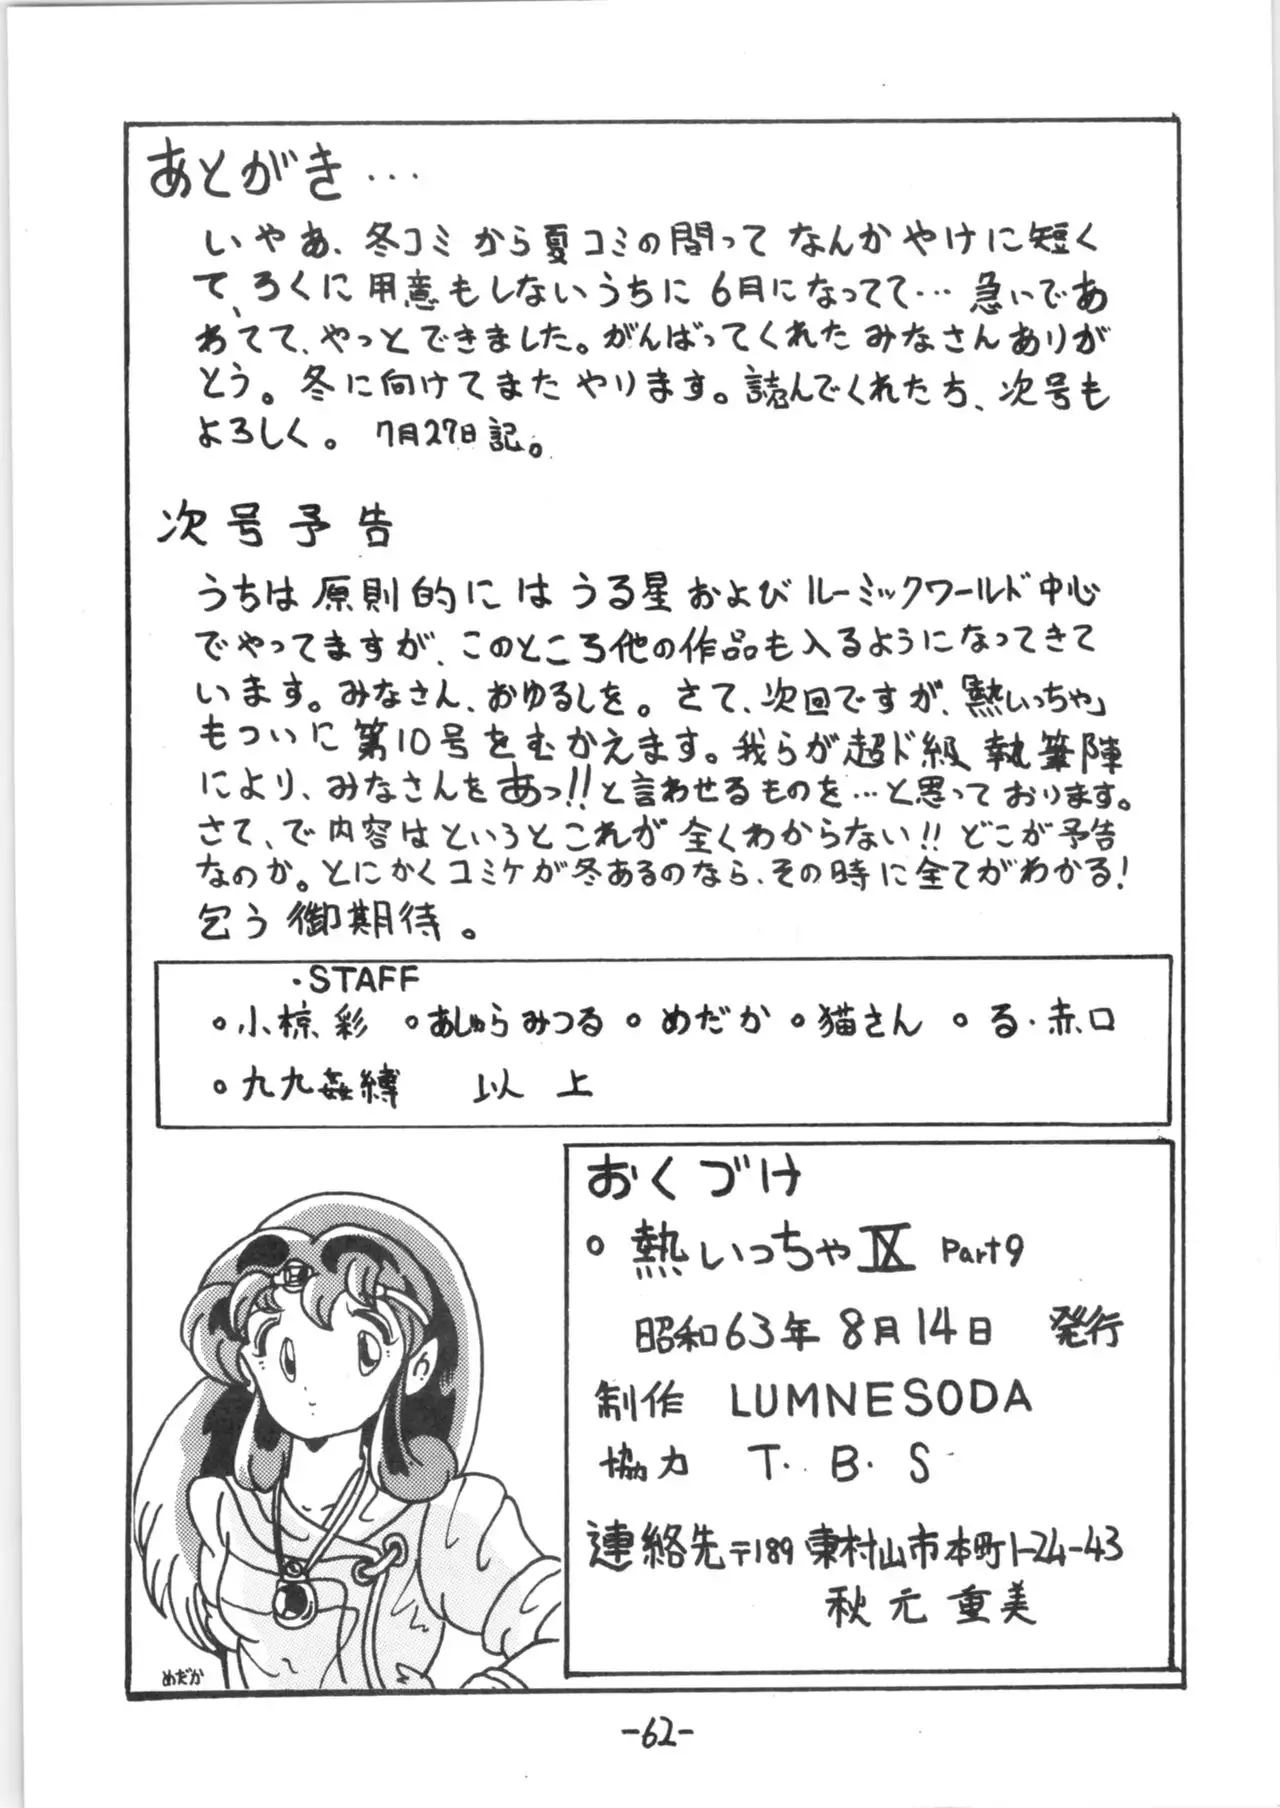 あとがき…
いやあ、冬コミから夏コミの間ってなんかやけに短く
て、ろくに用意もしないうちに6月になってて… 急いであ
わてて、やっとできました。がんばってくれたみなさんありが
とう。冬に向けてまたやります。読んでくれたら、次号も
よろしく。 7月27日記。
次号予告
うちは原則的にはうる星およびルーミックワールド中心
でやってますが、このところ他の作品も入るようになってきて
います。みなさん、おゆるしを。さて、次回ですが、「熱いっちゃ」
もついに第10号をむかえます。我らが超ド級執筆陣
により、みなさんをあっ!!と言わせるものを…と思っております。
さて、で内容はというとこれが全くわからない!! どこが予告
なのか。とにかくコミケが冬あるのなら、その時に全てがわかる!
乞う御期待。
・STAFF
○小椋彩 ○あしゅらみつる ○めだか ○猫さん ○る・赤口
○九九姦縛 以上
おくづけ
○熱いっちゃⅨ Part9
昭和63年8月14日 発行
制作 LUMNESODA
協力 T.B.S
連絡先〒189 東村山市本町1-24-43
秋元重美
めだか
-62-